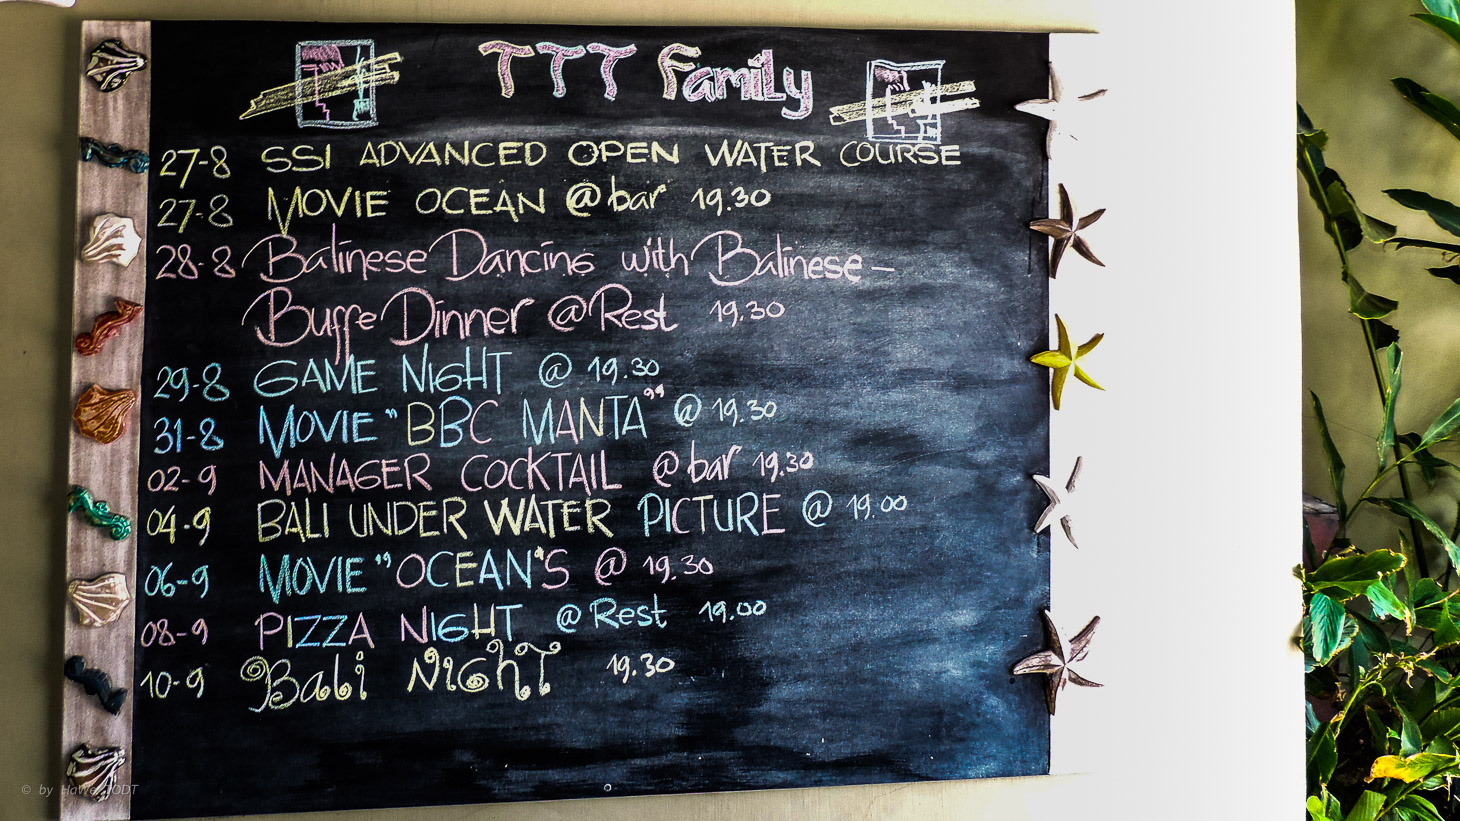 TTT Family
27-8 SSI ADVANCED OPEN WATER COURSE
27-8 MOVIE OCEAN @bar 19.30
28-8 Balinese Dancing with Balinese-
Buffe Dinner @Rest 19.30
29-8 GAME NIGHT @ 19.30
31-8 MOVIE "BBC MANTA" @ 19.30
02-9 MANAGER COCKTAIL @bar 19.30
04-9 BALI UNDER WATER PICTURE @ 19.00
06-9 MOVIE "OCEAN'S @ 19.30
08-9 PIZZA NIGHT @Rest 19.00
10-9 Bali NIGhT 19.30